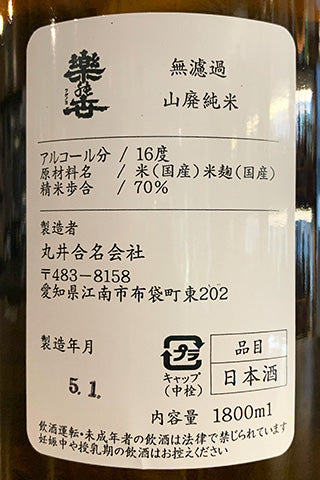 樂の世
無濾過
山廃純米
アルコール分 / 16度
原材料名 / 米(国産)米麹(国産)
精米歩合 / 70%
製造者
丸井合名会社
〒483−8158
愛知県江南市布袋町東202
製造年月
5.1.
プラ
キャップ
(中栓)
品目
日本酒
内容量 1800ml
飲酒運転・未成年者の飲酒は法律で禁じられています
妊娠中や授乳期の飲酒はお控えください